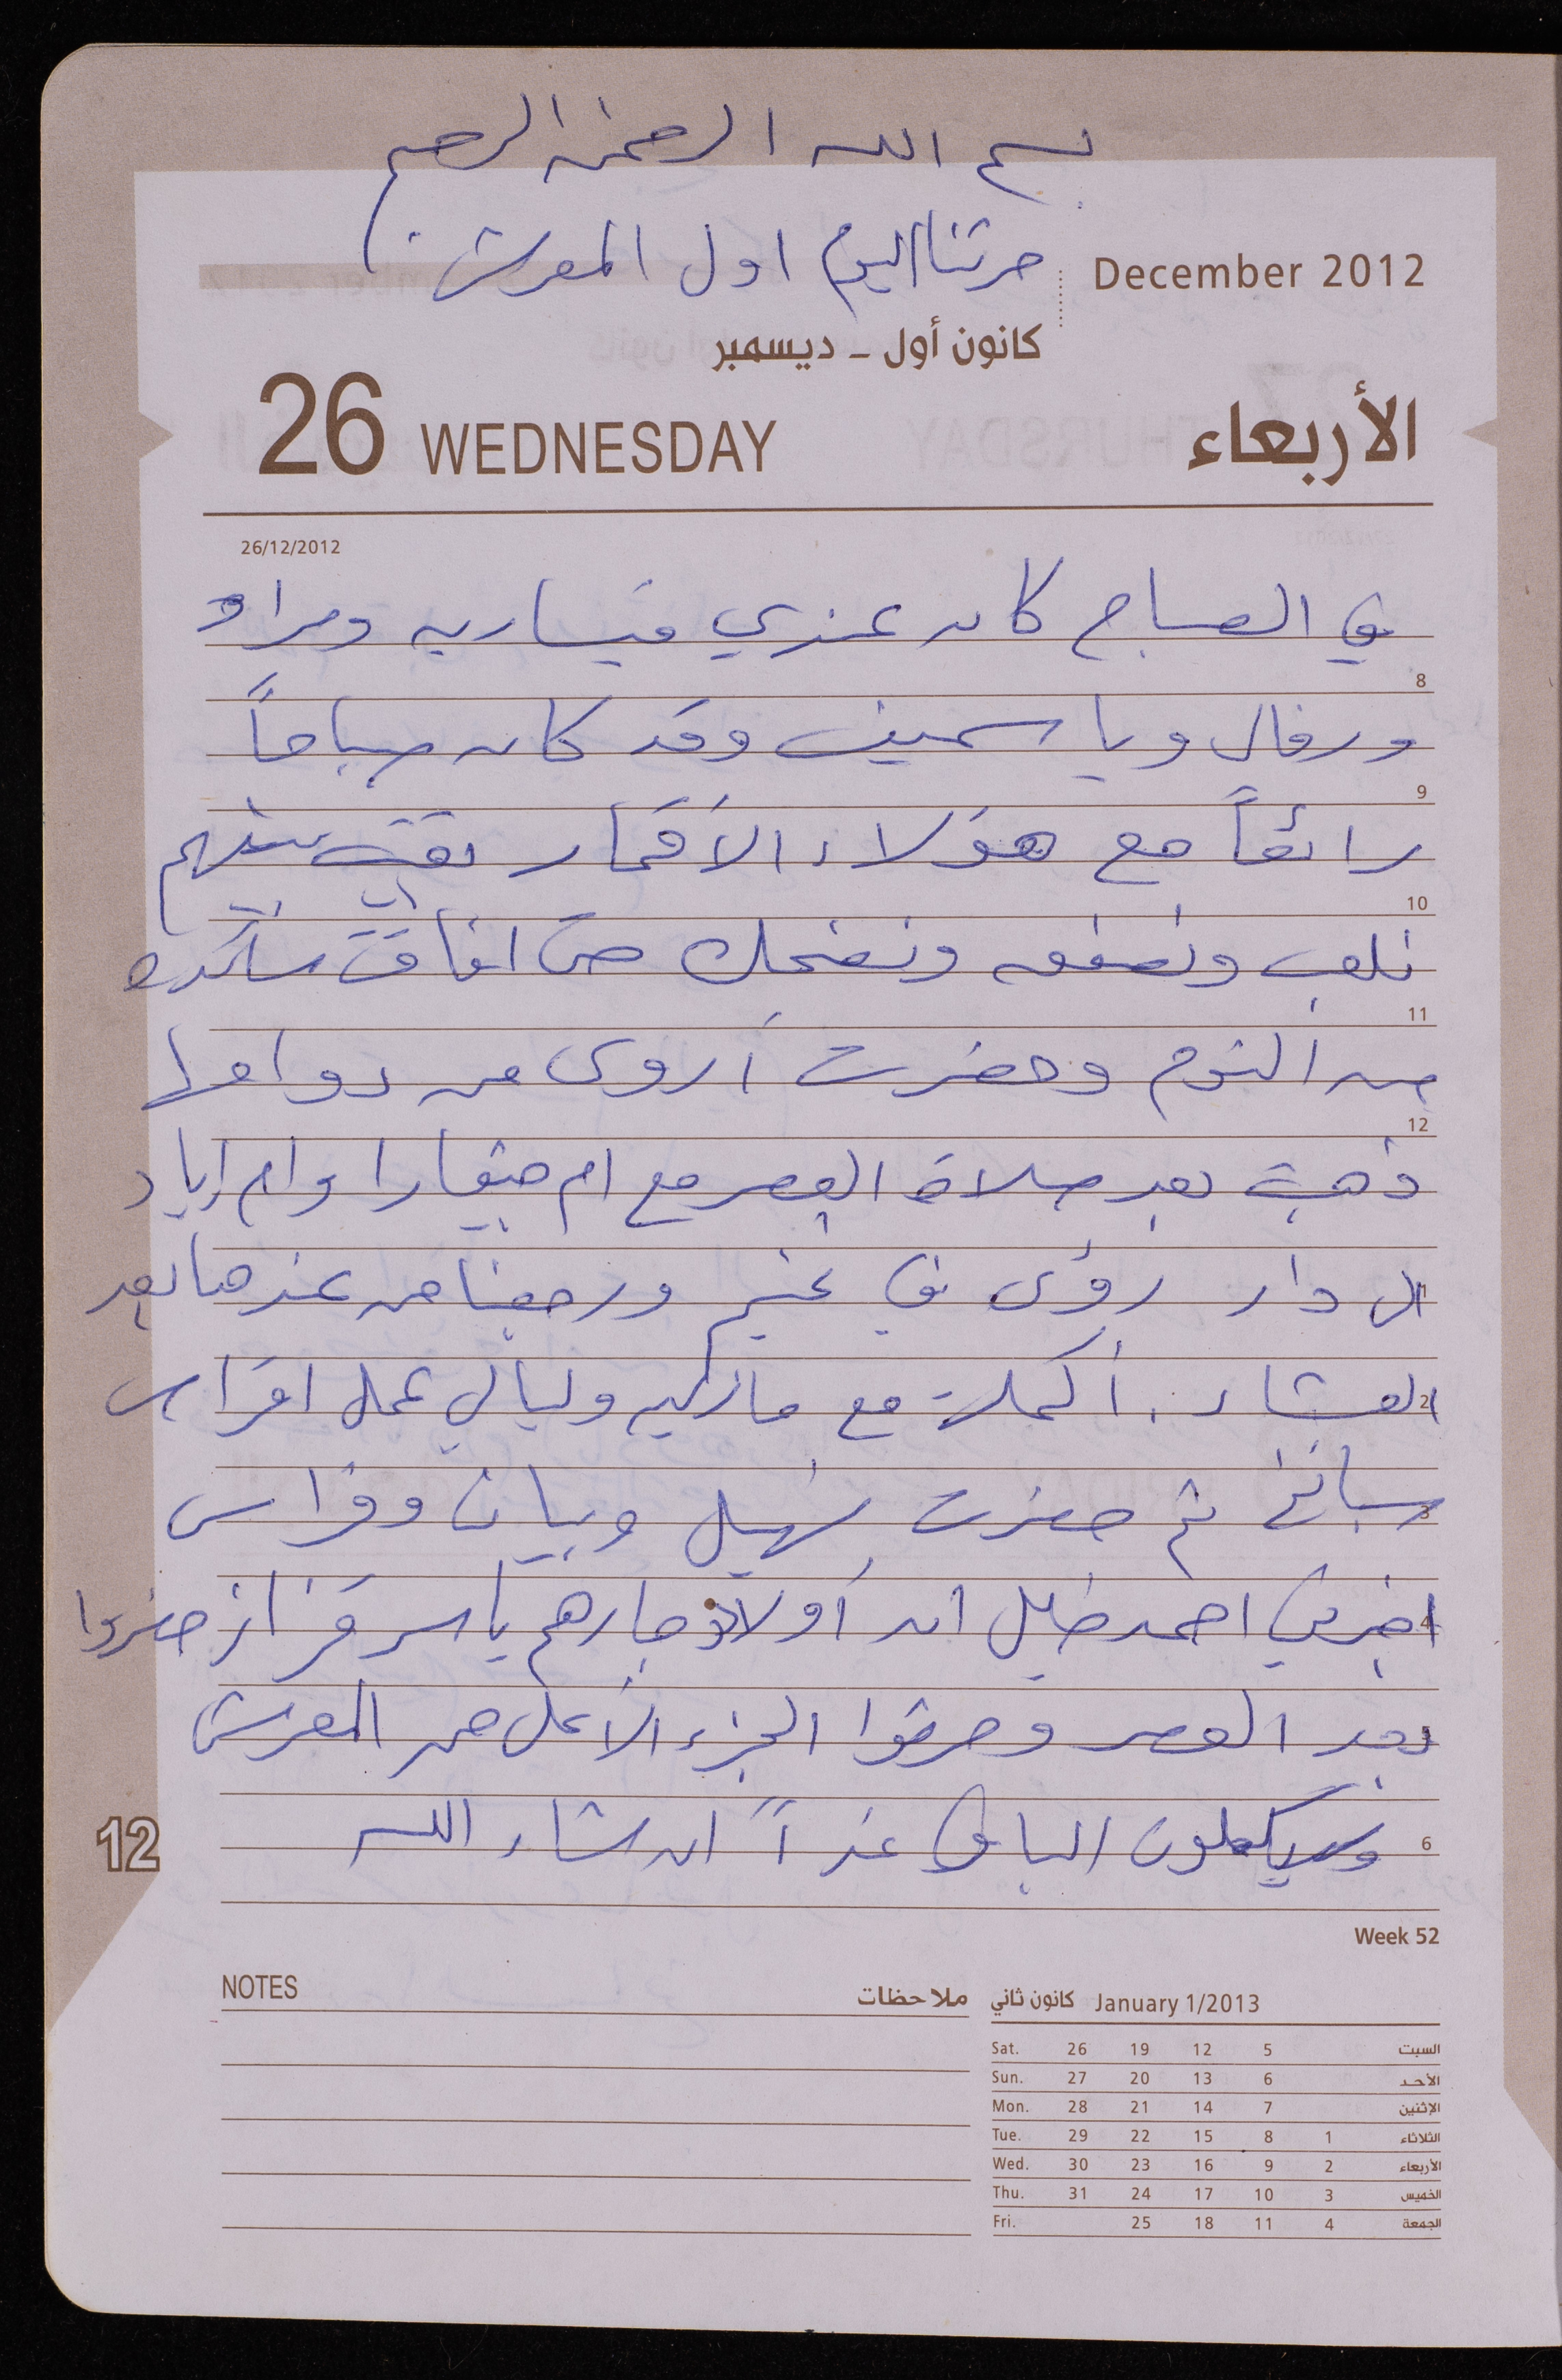 بسم الله الرحمن الرحيم
حرثنا اليوم اول المعرش
December 2012
كانون أول - ديسمبر
26 WEDNESDAY الأربعاء
26/12/2012
في الصباح كان عندي قيسارية ومراد
ورفال وياسمين وقد كان صباحاً
8
رائعاً مع هؤلاء الأقمار بقيت بينهم
9
10
نلعب ونصفق ونضحك حتى افاقت ساكده
11
من النوم وحضرت أروى من دوامها
12
ذهبت بعد صلاة العصر مع ام صقارا وام اياد
الى دار رؤى في مخيم ورجعنا من عندها بعد
1
العشاء . أكملت مع ماركيه وليالي عمل اقراص
2
سبانخ ثم حضرت نهيل وبيان وفراس
3
اخبرني احمد خليل ان أولاد جارهم ياسر قزاز حضروا
4
بعد العصر وحرثوا الجزء الأعلى من المعرش
5
وسيكملون الباقي غداً ان شاء الله
6
12
Week 52
NOTES ملاحظات
January 1/2013 كانون ثاني
Sat. 26 19 12 5 السبت
Sun. 27 20 13 6 الأحد
Mon. 28 21 14 7 الإثنين
Tue. 29 22 15 8 1 الثلاثاء
Wed. 30 23 16 9 2 الأربعاء
Thu. 31 24 17 10 3 الخميس
Fri. 25 18 11 4 الجمعة